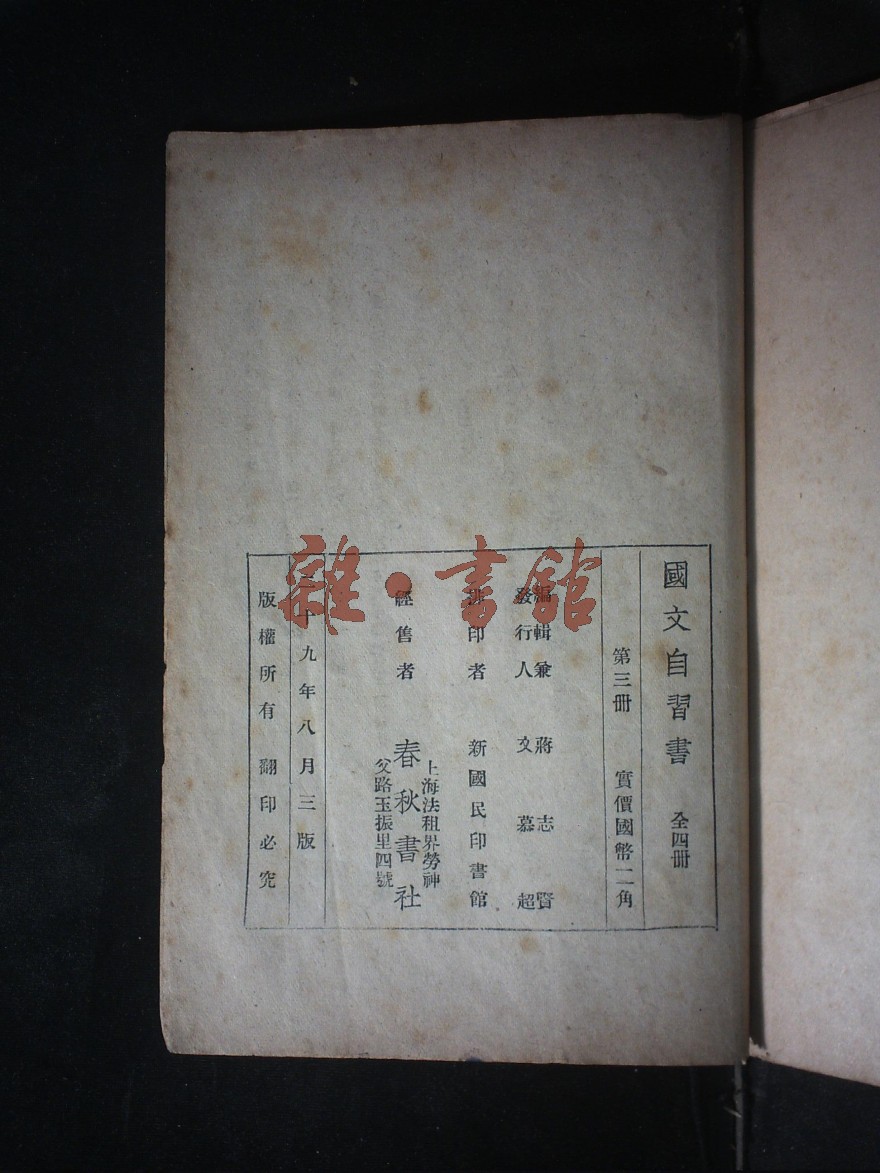 國文自習書 全四冊
第三冊 實價國幣二角
編輯兼 蔣志賢
發行人 文慕超
排印者 新國民印書館
經售者 春秋書社
上海法租界勞神
父路玉振里四號
十九年八月三版
版權所有 翻印必究
雜·書館